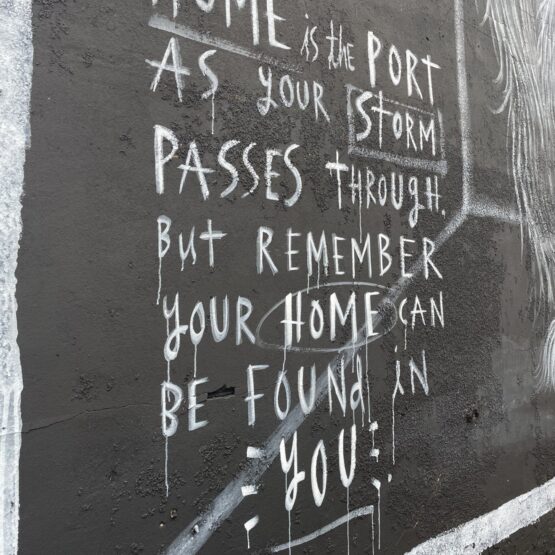 HOME is the PORT
AS YOUR STORM
PASSES THROUGH.
BUT REMEMBER
YOUR HOME CAN
BE FOUNd iN
YOU